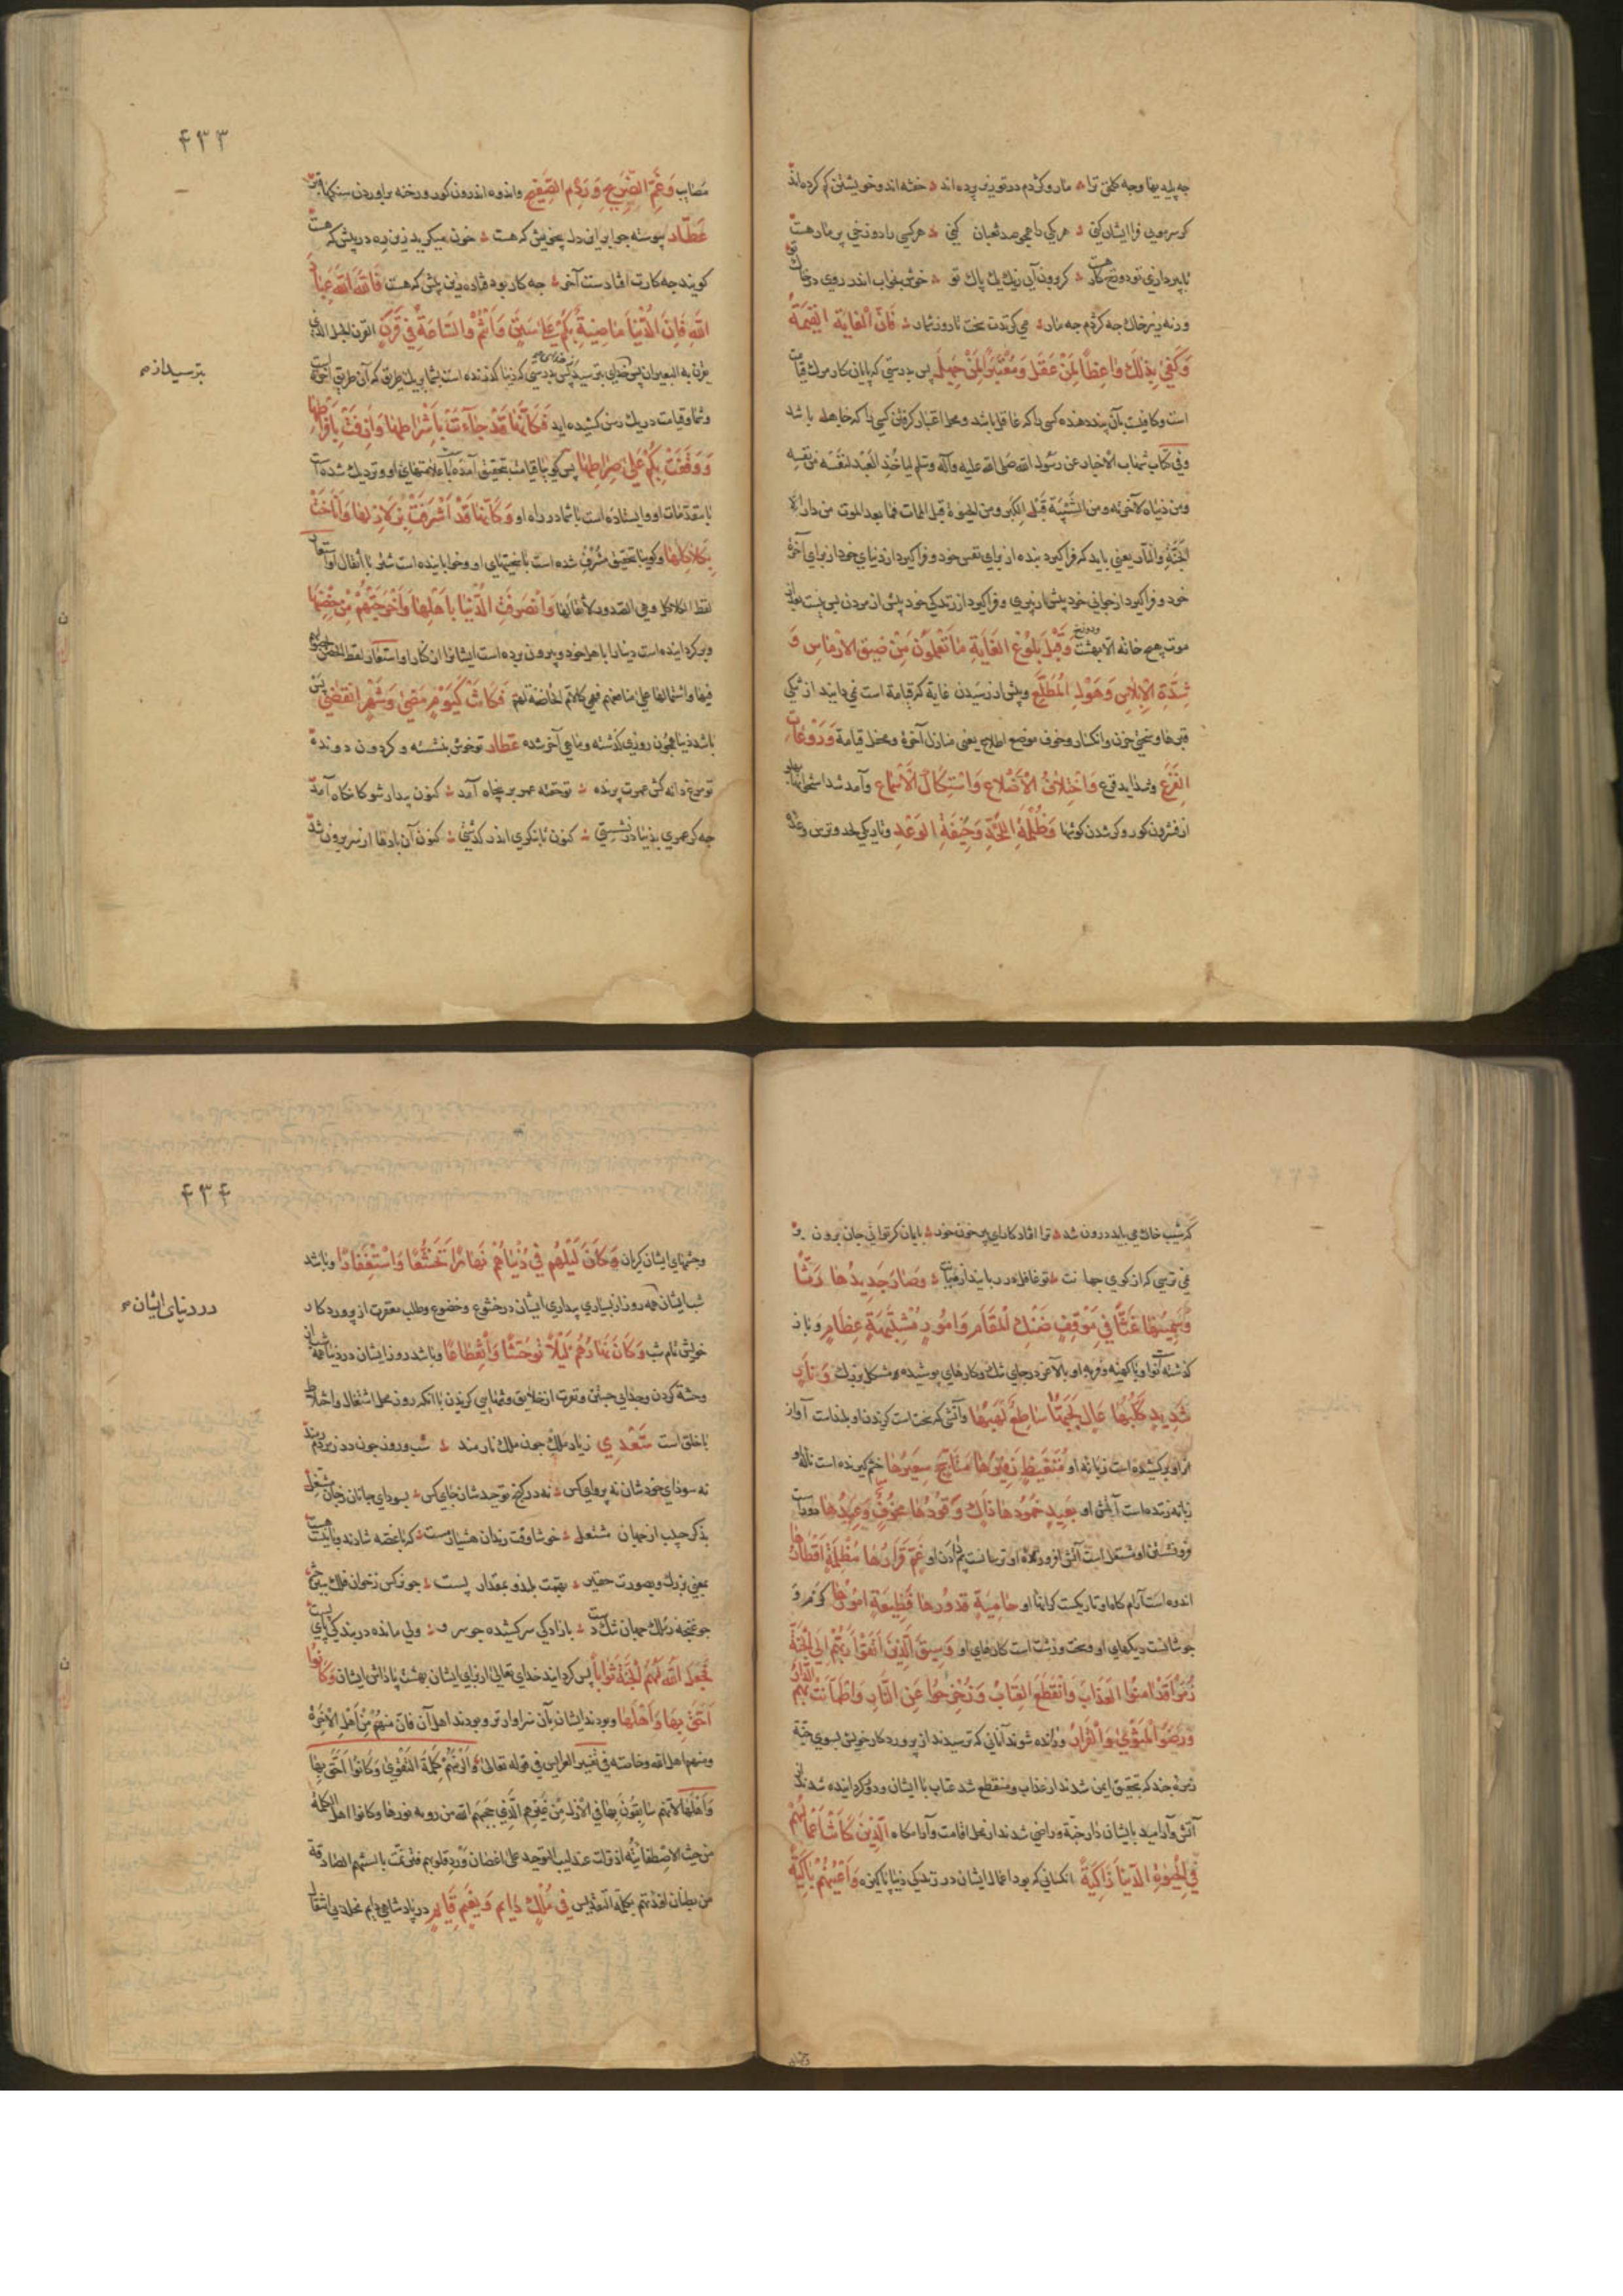 چه پلیدیها و چه کلخن ترا ؞ مار و کژدم در تو زیر پرده‌اند ؞ خفته‌اند و خویشتن کم کرده‌اند
کر سر مویی فرا ایشان کنی ؞ هر یکی را همچو صد ثعبان کنی ؞ هر کسی را دوزخی پر مار هست
تا بپردازی تو دوزخ کار هست ؞ کر برون آیی ز یک یک پاک تو ؞ خوش بخواب اندر روی در خاک تو
ورنه زیر خاک چه کژدم چه مار ؞ می کزندت سخت تا روز شمار ؞ فَاِنَّ الْغَايَةَ الْقِيٰمَةُ
وَكَفٰى بِذٰلِكَ وَاعِظًا لِمَنْ عَقَلَ وَمُعْتَبَرًا لِمَنْ جَهِلَ پس بدرستی که پایان کار مرک قیامت
است و کافیست بآن پند دهنده کسی را که عاقل باشد و محل اعتبار کرفتن کسی را که جاهل باشد
وفی کتاب شهاب الاخبار عن رسول الله صلی الله علیه وآله وسلم لیاخذ العبد لنفسه من نفسه
ومن دنیاه لآخرته ومن الشَّبِيبَة قبل الکبر ومن الحیوة قبل الممات فما بعد الموت من دار الا
الجنّة والنّار یعنی باید که فرا کیرد بنده از برای نفس خود و فرا کیرد از دنیای خود از برای آخرة
خود و فرا کیرد از جوانی خود پیش از پیری و فرا کیرد از زندکی خود پیش از مردن پس نیست بعد از
موت هیچ خانه الا بهشت ودوزخ وَقَبْلَ بُلُوغِ الْغَايَةِ مَا تَعْلَمُونَ مِنْ ضِيقِ الْاَرْمَاسِ وَ
شِدَّةِ الْاِبْلَاسِ وَهَوْلِ الْمُطَّلَعِ و پیش از رسیدن غایة که قیامة است می دانید از تنکی
قبرها و سختی حزن و انکسار و خوف موضع اطلاع یعنی منازل آخرة و محل قیامة وَرَوْعَاتِ
الْفَزَعِ وَاخْتِلَافِ الْاَضْلَاعِ وَاسْتِكَاكِ الْاَسْمَاعِ و آمد شد استخوانها پهلو
از فشردن کور و کر شدن کوشها وَظُلْمَةِ اللَّحْدِ وَخِيفَةِ الْوَعْدِ و تاریکی لحد و ترس وعده
۴۳۳
مصایب وَغَمِّ الضَّرِيحِ وَرَدْمِ الصَّفِيحِ و اندوه اندرون کور و رخنه براوردن سنکهای قبر
عَطّار پیوسته جو ابر این دل بیخویش که هست ؞ خون میکرید زین ره در پیش که هست
کویند چه کارت افتادست آخر ؞ چه کار بود فتاده زین پیش که هست فَاللهَ اللهَ عِبَادَ
اللهِ فَاِنَّ الدُّنْيَا مَاضِيَةٌ بِكُمْ عَلٰى سَنَنٍ وَاَنْتُمْ وَالسَّاعَةُ فِي قَرَنٍ القرن الحبل الذی
یقرن به البعیران پس بدرستی که دنیا کذرنده است بشما بر یک طریق که آن طریق آخرت است
بترسید از
و شما و قیامت در یک رسن کشیده اید فَكَاَنَّهَا قَدْ جَآءَتْ بِاَشْرَاطِهَا وَاَزِفَتْ بِاَفْرَاطِهَا
وَوَقَفَتْ بِكُمْ عَلٰى صِرَاطِهَا پس کویا قیامت بتحقیق آمده با علامتهای او و نزدیک شده است
با مقدمات او و ایستاده است با شما در راه او وَكَاَنَّهَا قَدْ اَشْرَفَتْ بِزَلَازِلِهَا وَاَنَاخَتْ
بِكَلَاكِلِهَا و کویا بتحقیق مشرف شده است با سختیهای او و خوابانیده است شتر با اثقال او استعار
لفظ الکلاکل وهی الصدور لاثقالها وَانْصَرَفَتِ الدُّنْيَا بِاَهْلِهَا وَاَخْرَجَتْهُمْ مِنْ حِضْنِهَا
و بر کردانیده است دنیا را باهل خود و بیرون برده است ایشانرا از کنار او استعار لفظ الحضن
فَكَانَتْ كَيَوْمٍ مَضٰى وَشَهْرٍ انْقَضٰى پس
باشد دنیا همچون روزی کذشته و ماهی آخر شده عطار تو خوش بنشسته و کردون دونده
تو مرغ دانه کش عمرت پرنده ؞ تو خفته عمر بر پنجاه آمد ؞ کنون بیدار شو کا کاه آمد
چه کر عمری بدنیا در نشستی ؞ کنون تا بنکری اندر کذشتی ؞ کنون آن بادها از سر برون شد
که شیب خاک می باید درون شد ؞ ترا افتاد کار ای پیر خون خور ؞ بپایان کر توانی جان برون بر
نمی ترسی که از کوی جهانت ؞ تو غافل در ربایند از میانت ؞ وَصَارَ جَدِيدُهَا رَثًّا
وَسَمِينُهَا غَثًّا فِي مَوْقِفٍ ضَنْكِ الْمَقَامِ وَاُمُورٍ مُشْتَبِهَةٍ عِظَامٍ و تازه
کذشته نو او با کهنه و فربه او با لاغر در جای تنک و کارهای پوشیده و مشکل بزرک وَنَارٍ
شَدِيدٍ كَلَبُهَا عَالٍ لَجَبُهَا سَاطِعٍ لَهَبُهَا و آتشی که سخت است کزندن او بلند است آواز
او بر کشیده است زبانه او مُتَغَيِّظٍ زَفِيرُهَا مُتَاَجِّجٍ سَعِيرُهَا خشم کیرنده است ناله او
زبانه زننده است آتش او بَعِيدٍ خُمُودُهَا ذَاكٍ وُقُودُهَا مَخُوفٍ وَعِيدُهَا دور است
فرو نشستن او مشتعل است آتش افروزنده او ترسانست بیم دادن او غَمٍّ قَرَارُهَا مُظْلِمَةٍ اَقْطَارُهَا
اندوه است آرام کاه او تاریکست کرانهای او حَامِيَةٍ قُدُورُهَا فَظِيعَةٍ اُمُورُهَا کرم و
جوشانست دیکهای او و سخت و زشت است کارهای او وَسِيقَ الَّذِينَ اتَّقَوْا رَبَّهُمْ اِلَى الْجَنَّةِ
زُمَرًا قَدْ اَمِنُوا الْعَذَابَ وَانْقَطَعَ الْعِتَابُ وَزُحْزِحُوا عَنِ النَّارِ وَاطْمَاَنَّتْ بِهِمُ الدَّارُ
وَرَضُوا الْمَثْوٰى وَالْقَرَارَ و رانده شوند آنانی که ترسیدند از پروردکار خویش بسوی جنّة
زمره چند که بتحقیق ایمن شدند از عذاب و منقطع شد عتاب با ایشان و دور کردانیده شدند از
آتش و آرامید بایشان دار جنّة و راضی شدند از محل اقامت و آرامکاه الَّذِينَ كَانَتْ اَعْمَالُهُمْ
فِي الْحَيٰوةِ الدُّنْيَا زَاكِيَةً انکسانی که بود اعمال ایشان در زندکی دنیا پاکیزه وَاَعْيُنُهُمْ بَاكِيَةً
۴۳۴
و چشمهای ایشان کریان وَكَانَ لَيْلُهُمْ فِي دُنْيَاهُمْ نَهَارًا تَخَشُّعًا وَاسْتِغْفَارًا و باشد
شب ایشان همه روز از بسیاری بیداری ایشان در خشوع و خضوع و طلب مغفرت از پروردکار
در دنیای ایشان
خویش تمام شب وَكَانَ نَهَارُهُمْ لَيْلًا تَوَحُّشًا وَانْقِطَاعًا و باشد روز ایشان در دنیا همه شب از
وحشة کردن و جدایی جستن و نفرت از خلایق و تنهایی کزیدن با آنکه روز محل اشتغال و اختلاط
با خلق است سَعْدِي
نه سودای خودشان نه پروای کس ؞ نه در کنج توحیدشان جای کس ؞ بسودای جانان ز جان مشتغل
بذکر حبیب از جهان مشتغل ؞ خوشا وقت رندان هشیار مست
بمعنی بزرک و بصورت حقیر ؞ بهمت بلند و بمقدار پست
جو غنچه ز ملک جهان تنک دست ؞ بازادکی سر کشیده جو سرو ؞ ولی مانده در بندکی پای بست
فَجَعَلَ اللهُ لَهُمُ الْجَنَّةَ ثَوَابًا پس کردانید خدای تعالی از برای ایشان بهشت پاداش ایشان وَكَانُوا
اَحَقَّ بِهَا وَاَهْلَهَا و بودند ایشان بآن سزاوارتر و بودند اهل آن فانّ منهم من اهل الآخرة
ومنهم اهل الله وخاصته فی تفسیر العرایس فی قوله تعالی وَاَلْزَمَهُمْ كَلِمَةَ التَّقْوٰى وَكَانُوا اَحَقَّ بِهَا
وَاَهْلَهَا لانهم سابقون بها فی الازل
من حیث الاصطفائیة اذ قالت عندلیب التوحید علی اغصان ورد قلوبهم
فِي مُلْكٍ دَائِمٍ وَنَعِيمٍ قَائِمٍ در پادشاهی دایم مخلد بی انتقال